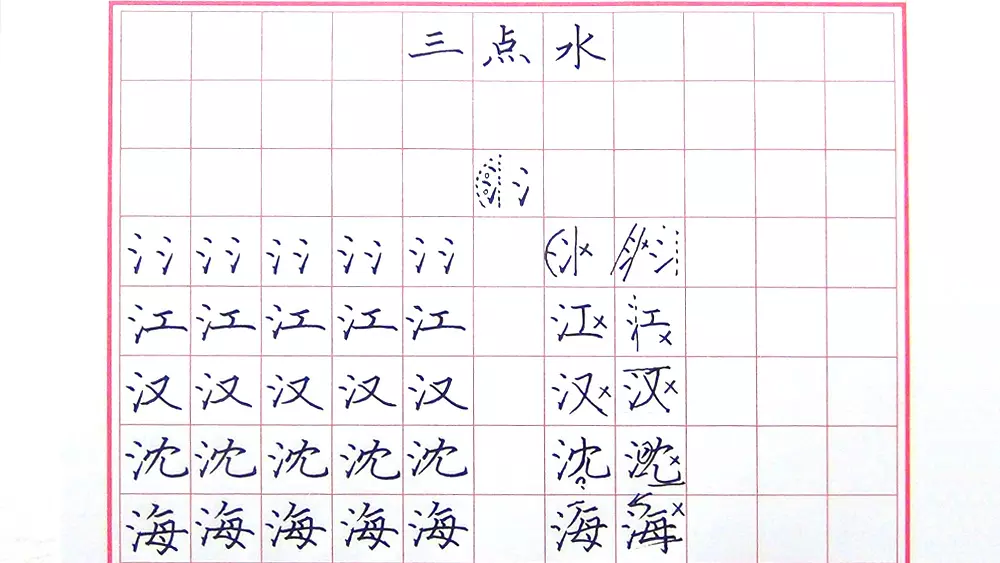 三点水
氵氵
氵氵 氵氵 氵氵 氵氵 氵氵 氵× 氵×氵
江 江 江 江 江 江× 江×
汉 汉 汉 汉 汉 汉× 汉×
沈 沈 沈 沈 沈 沈 沈×
海 海 海 海 海 海 海×